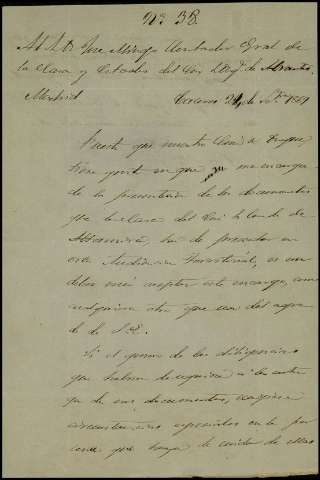 Nº 38.
Al S. D. José Mingo Contador Gral de
la Casa y Estados del Sor Duq. de Abrantes.
Madrid
Cáceres 21, de Stre. 1859
Puesto que nuestra Casa de
tiene gusto en que yo me encargue
de la presentacion de los documentos
que la Casa del Sor Conde de
ha de presentar en
esta Audiencia Territorial, es un
deber mio aceptar este encargo, como
cualquiera otro que sea del agra
do de S. E.
Si el giro de las diligencias
que habran de seguirse á la entre
ga de esos documentos,
circunstancias especiales en la per
sona que haya de cuidar de ellas